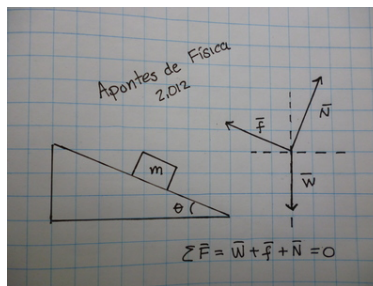 Apontes de Física
2,012
f̅
N̅
m
W̅
θ
ΣF̅ = W̅ + f̅ + N̅ = 0